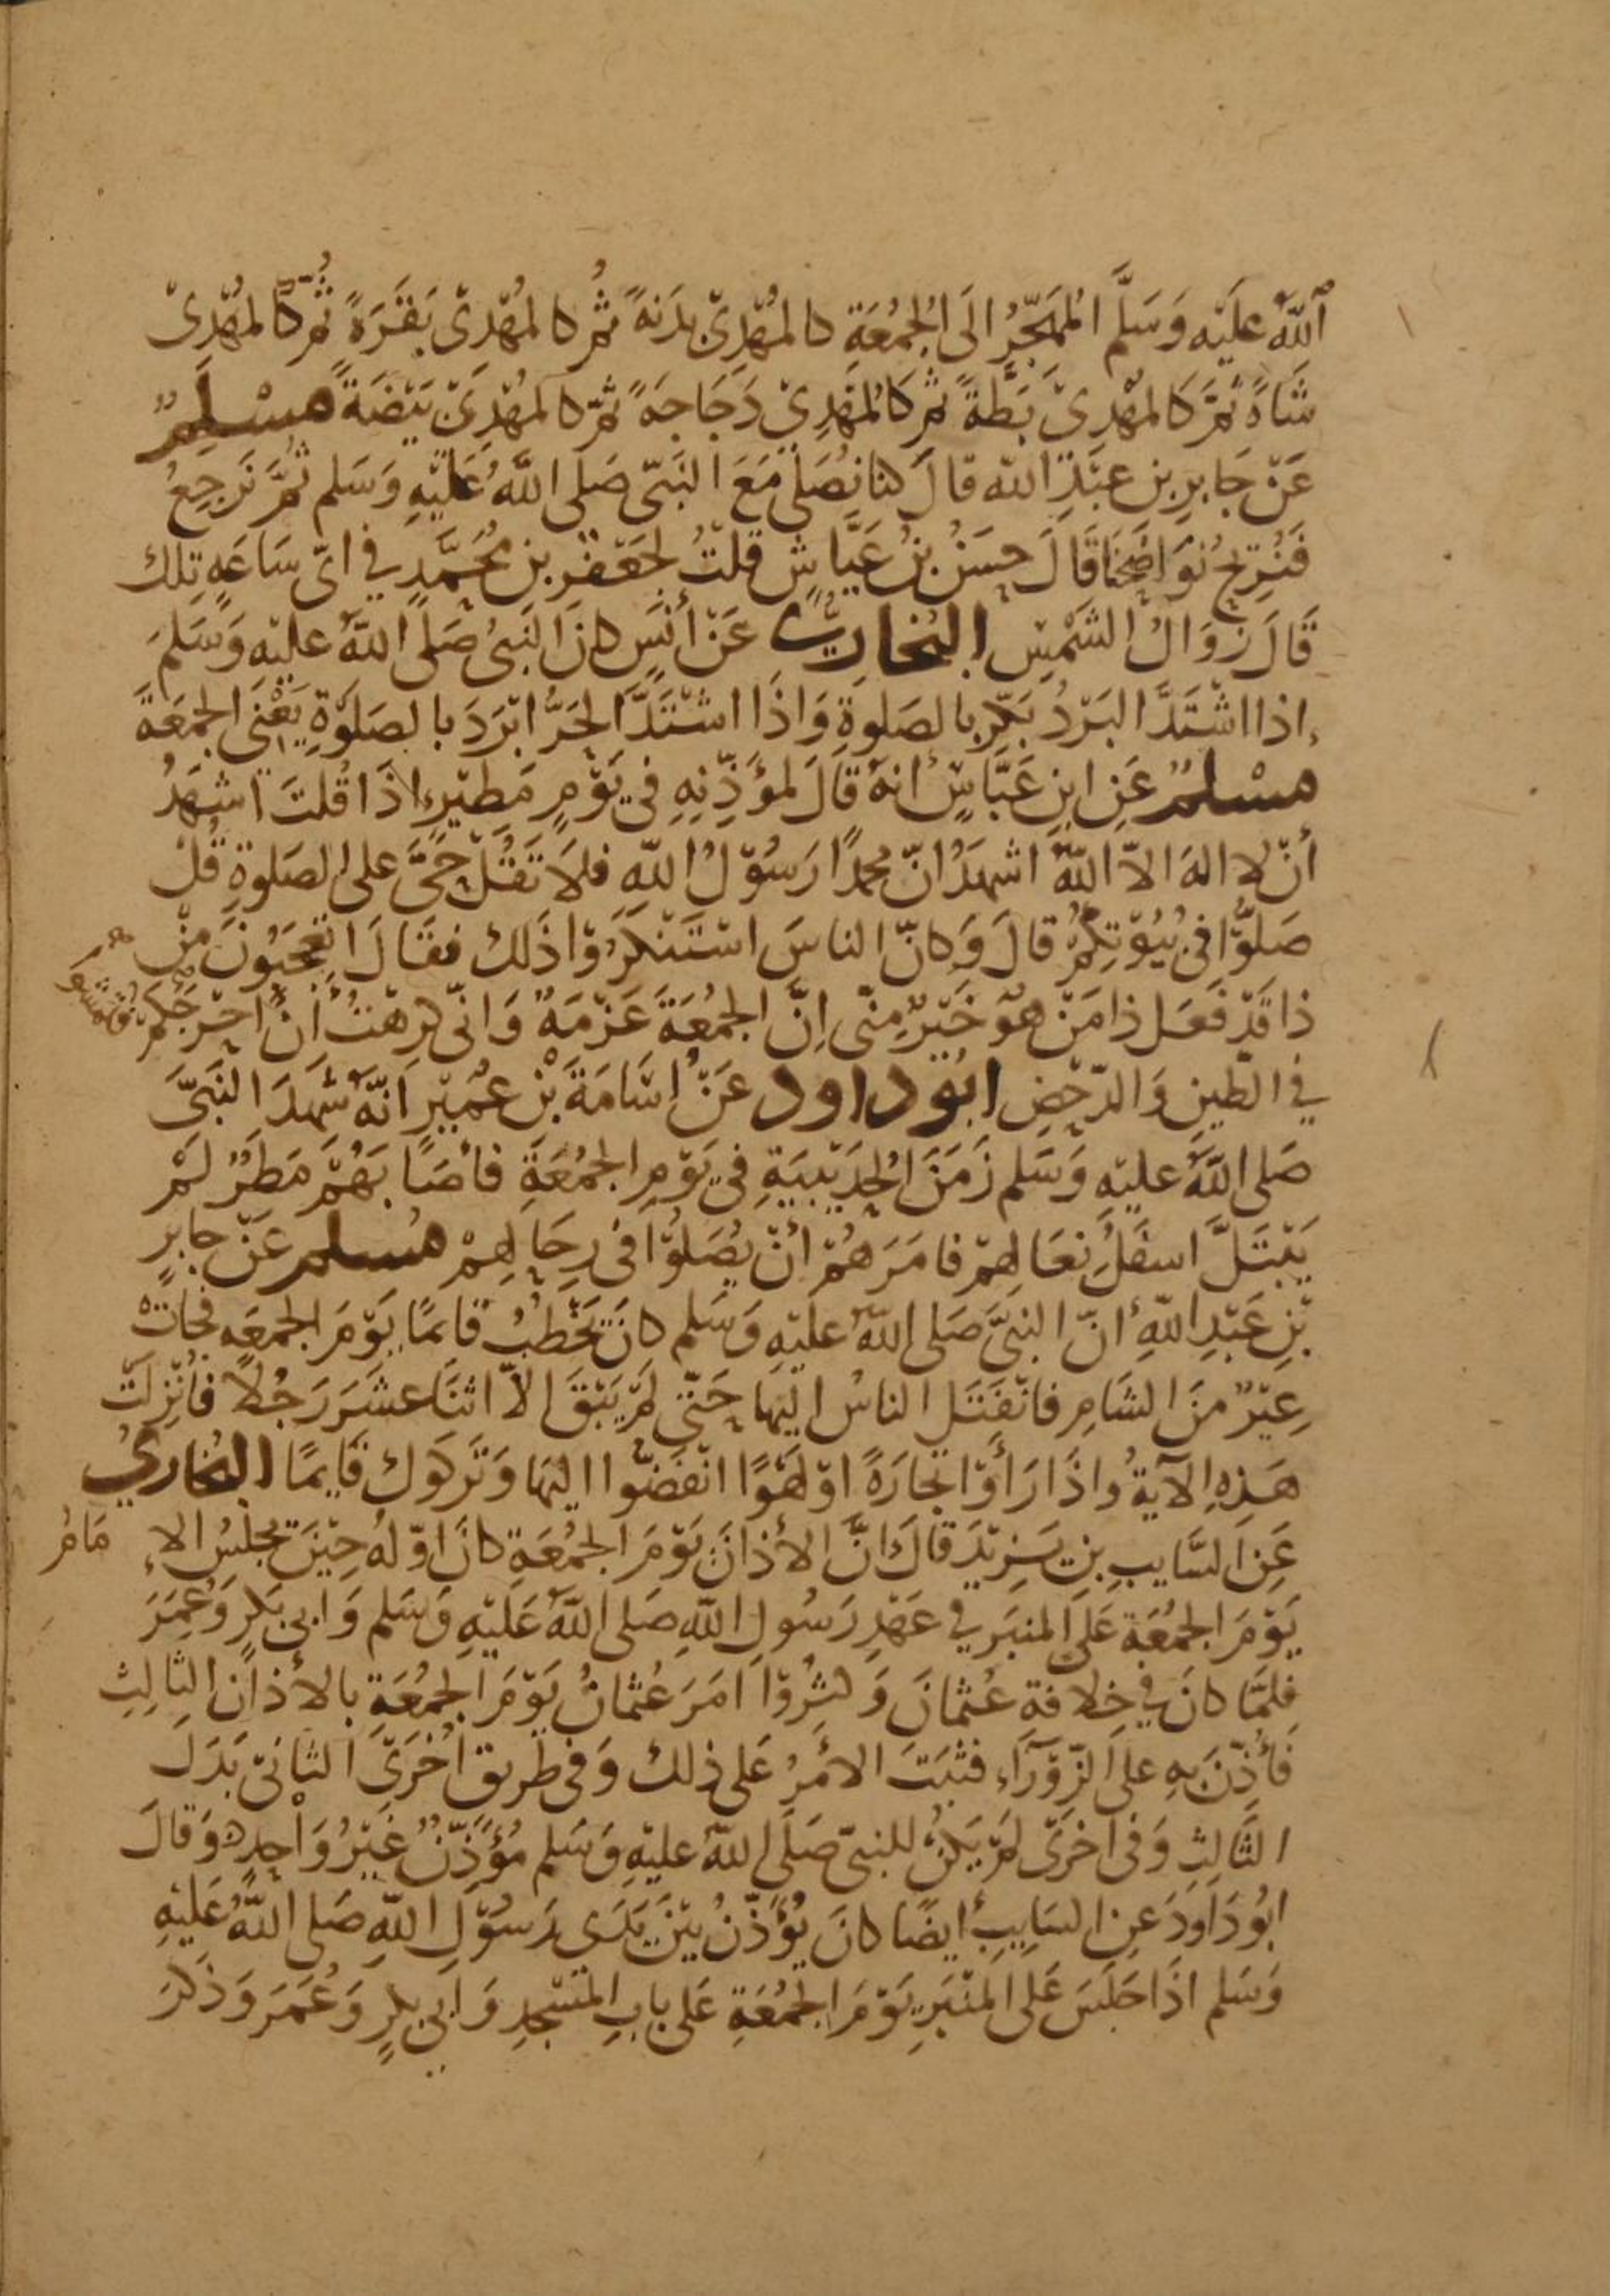 اللهُ عليْه وَسَلَّم المُهَجِّرُ الَى الجُمُعَةِ كالمُهْدِيْ بدَنَةً ثُم كالمُهْدِىْ بَقَرَةً ثُم كَالمُهْدِىْ
شَاةً ثُمَّ كَالمهْدِىْ بَطَّةً ثُم كَالمُهْدِيْ دَجَاجَةً ثُمّ كالمُهْدِىْ بَيْضَةً مسْلِمٌ
عَنْ جَابِرِ بن عبْدِ الله قالَ كنا نُصَلى مَعَ النَبّى صَلى اللهُ عَليْهِ وَسَلم ثُمَّ نَرجِعُ
فَنُرِيحُ نوَاضِحَنَا قَالَ حسَنُ بنُ عَيَّاشٍ قلتُ لجَعْفَرِ بنِ مُحَمَّدٍ في ايّ سَاعَةٍ تِلك
قَالَ زَوَالُ الشَمْسِ البُخَارِيّ عَنْ أنَسٍ كانَ النَبىُ صَلى اللهُ عليْهِ وَسَلمَ
اذا اشْتَدَّ البَرْدُ بَكّر بالصَلوةِ وَاذَا اشْتَدَّ الحَرُّ ابْرَدَ بالصَلوةِ يَعْنِى الجمعَةَ
مسْلمٌ عَنِ ابنِ عَبّاسٍ أنهُ قَالَ لمؤذِّنِهِ في يَوْمٍ مَطِيْرٍ اذَا قُلتَ اشهَدُ
أنْ لا الهَ الاّ اللهُ اشهَدُ انّ محمدًا رَسُوْلُ اللهِ فلاَ تَقُلْ حَىَّ على الصَلوةِ قُلْ
صَلُوْا فىْ بُيُوْتِكُمْ قالَ وَكانّ الناسَ اسْتَنْكَرُوْا ذَلك فقَالَ اتعجَبُونَ مِنْ
ذا قَدْ فَعَل ذا مَنْ هوَ خَيْرٌ مِنّى اِنَّ الجمُعَةَ عَزْمَةٌ وَانّى كَرِهْتُ أنْ احْرجَكمْ فَتمْشُوْ
في الطِين وَالدّحْضِ ابُوْ داود عَنْ اسَامَةَ بْنِ عُمَيْرٍ انّهُ شَهِدَ النَبىَّ
صَلى اللهُ عليْهِ وَسَلم زَمَنَ الحُدَيْبِيَةِ فى يَوْمِ الجمُعَةِ فأصَابَهُمْ مَطَرٌ لَمْ
يَبْتَلَّ اسفَلُ نعَالهِمْ فامَرَهُمْ أنْ يُصَلوْا فى رِحَالهِمْ مُسلم عَنْ جابرِ
بْنِ عَبْدِ اللهِ أنّ النبىَّ صَلى اللهُ عليْهِ وَسَلم كانَ يَخْطُبُ قَائمًا يَوْمَ الجمعَه فجاَتْ
عِيْرٌ منَ الشَامِ فانْفَتَل الناسُ اليْهَا حَتّى لَمْ يَبْقَ الاّ اثنَا عشَرَ رَجُلاً فأنْزِلَتْ
هَذِهِ الآيةُ واذَا رَأَوْا تجارَةً اوْ لَهْوًا انْفَضّوا اليْهَا وَتَرَكوك قَايمًا البُخَارِيُ
عَنِ السَّايبِ بنِ يَزِيْدَ قَالَ انَّ الأذانَ يَوْمَ الجمُعَةِ كانَ اوّلُهُ حِيْنَ يَجْلِسُ الاِ مَامُ
يَوْمَ الجمُعَة عَلى المنبَر في عَهْدِ رَسُولِ اللهِ صَلى اللهُ عَليْهِ وَسَلم وَابى بَكرٍ وَعُمَرَ
فلمّا كانَ في خِلافَةِ عثمانَ وَكثُرُوْا امَرَ عُثمانُ يَوْمَ الجمُعَةِ بالأذانِ الثالِثِ
فَأُذِّنَ بِهِ على الزّوْرَآءِ فثبَتَ الأمْرُ عَلى ذلك وَفى طريق أخْرَى الثانىْ بَدَلَ
الثَالِثِ وَفى اخرَى لَمْ يَكُنْ للنبىّ صَلى اللهُ عليْهِ وَسَلم مُؤَذّنٌ غيْرُ وَاحِدٍ وَقَالَ
ابُوْ دَاوُدَ عنِ السَايِبِ أيضًا كانَ يُؤَذّنُ بيْنَ يَدَى رَسُوْلِ اللهِ صَلى اللهُ عَليْهِ
وَسَلم اذَا جَلَسَ عَلى المنْبَرِ يَوْمَ الجمُعَةِ عَلى بابِ المَسْجِدِ وَابى بكرٍ وَعُمَرَ وَذَكرَ